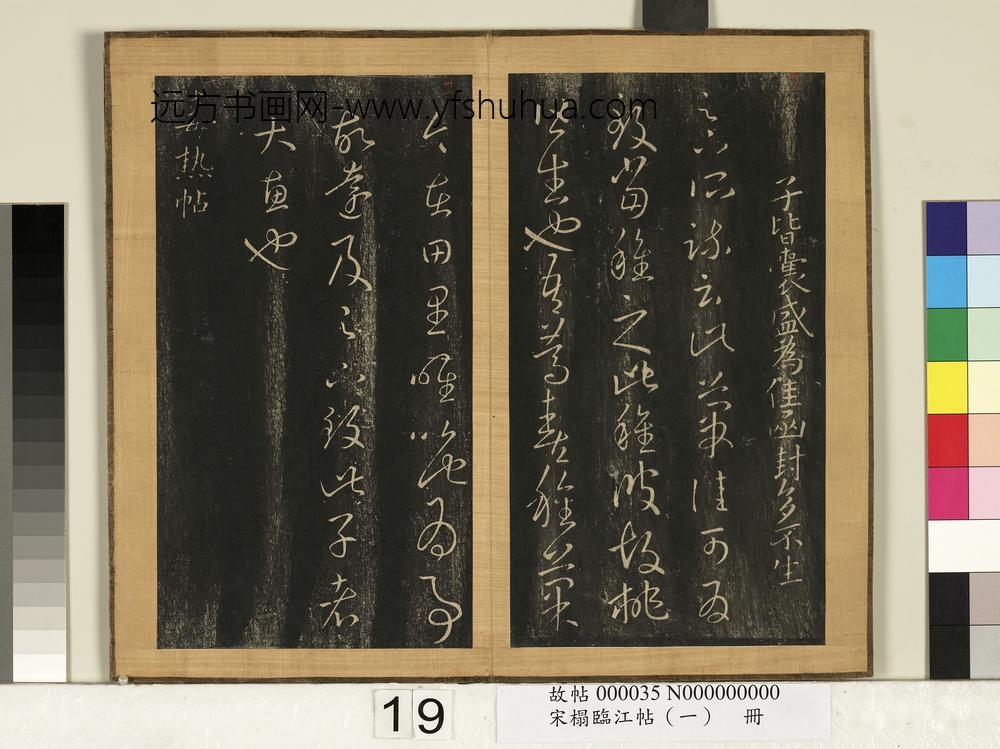 远方书画网-www.yfshuhua.com
子皆囊盛為佳函封多不生
足下所疏云此菓佳可為
致當種之此種彼胡桃
皆生也吾篤喜種菓
今在田里唯以此為事
故遠及足下致此子者
大惠也
热帖
19
故帖 000035 N000000000
宋榻臨江帖（一） 冊